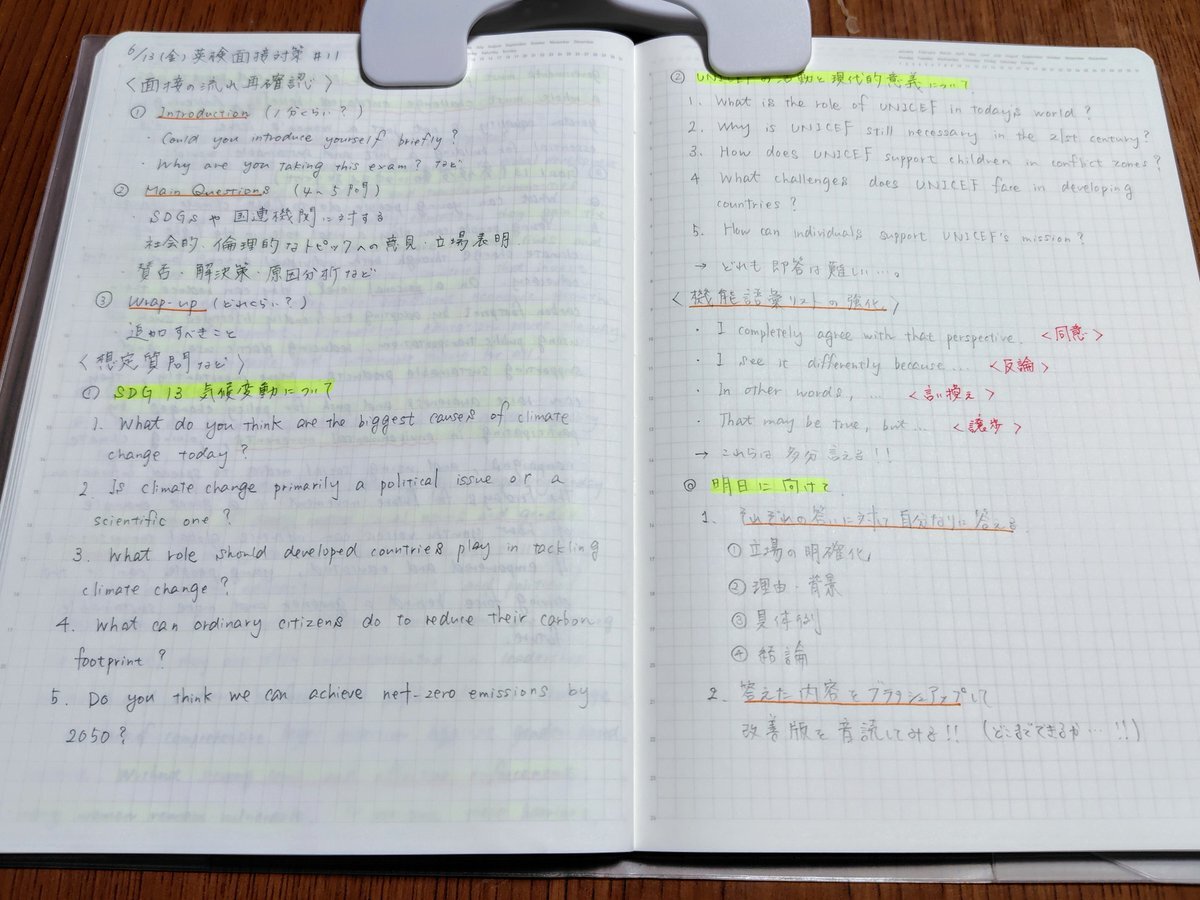 6/13(金) 英検面接対策 #11
〈面接の流れ再確認〉
① Introduction (1分くらい?)
・Could you introduce yourself briefly?
・Why are you taking this exam? など
② Main Questions (4〜5問)
・SDGsや国連機関に対する
社会的・倫理的なトピックへの意見・立場表明
・賛否・解決策・原因分析など
③ Wrap-up (どれくらい?)
・追加すべきこと
〈想定質問など〉
① SDG 13 気候変動について
1. What do you think are the biggest causes of climate
change today?
2. Is climate change primarily a political issue or a
scientific one?
3. What role should developed countries play in tackling
climate change?
4. What can ordinary citizens do to reduce their carbon
footprint?
5. Do you think we can achieve net-zero emissions by
2050?
② UNICEFの活動と現代的意義について
1. What is the role of UNICEF in today's world?
2. Why is UNICEF still necessary in the 21st century?
3. How does UNICEF support children in conflict zones?
4 What challenges does UNICEF face in developing
countries?
5. How can individuals support UNICEF's mission?
→ どれも即答は難しい…。
〈機能語彙リストの強化〉
・I completely agree with that perspective. <同意>
・I see it differently because... <反論>
・In other words, ... <言い換え>
・That may be true, but... <譲歩>
→ これらは多分言える!!
◎ 明日に向けて
1. それぞれの答えに対して自分なりに答える
① 立場の明確化
② 理由・背景
③ 具体例
④ 結論
2. 答えた内容をブラッシュアップして
改善版を音読してみる!! (どこまでできるか…!!)